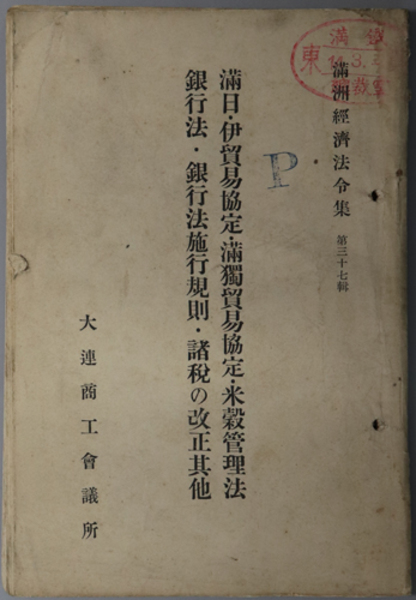 滿洲經濟法令集 第三十七輯
滿日・伊貿易協定・滿獨貿易協定・米穀管理法
銀行法・銀行法施行規則・諸稅の改正其他
大連商工會議所
P
滿
東
3.